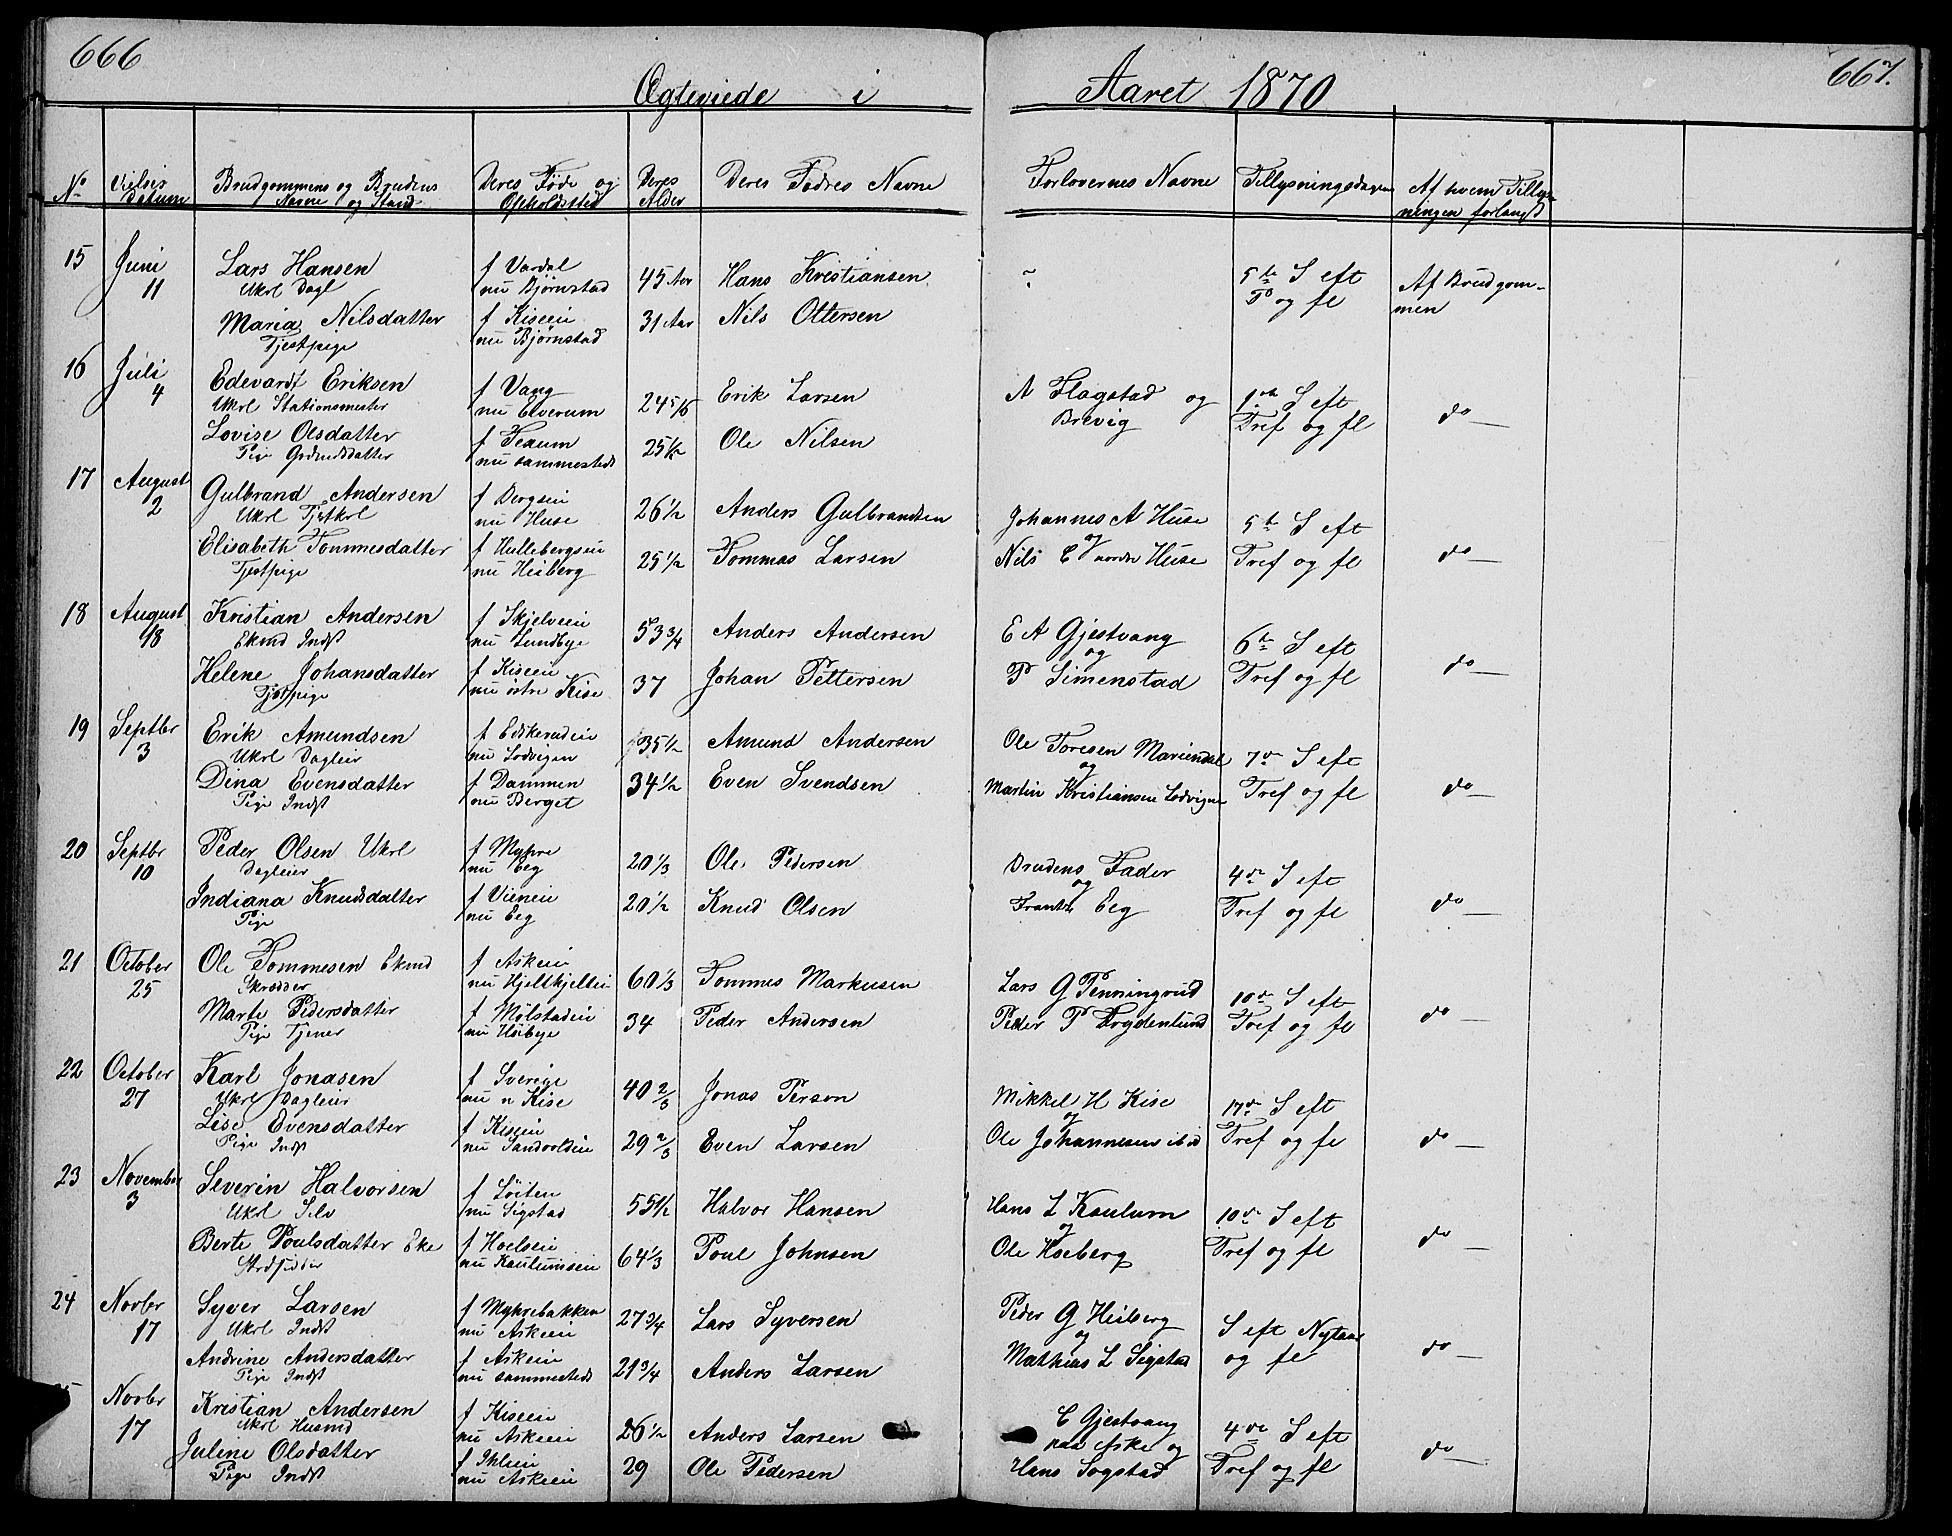 666
Ægteviede i
Aaret 1870
667.
No
Vielses Datum
Brudgommens og Brudens Navne og Stand
Deres Føde og Opholdssted
Deres Alder
Deres Fædres Navne
Forlovernes Navne
Tillysningsdagen
Af hvem Tillysningen forlangt
15 Juni 11
Lars Hansen f Vardal 45 Aar Hans Kristiansen 5te S eft
Ukrl Dagl nu Bjørnstad To og fl Af Brudgommen
Maria Nilsdatter f Kiseeie 31 Aar Nils Ottersen
Tjestpige nu Bjørnstad
16 Juli 4
Edevardt Eriksen f Vang 24 5/6 Erik Larsen A Flagstad og 1ste S eft
Ukrl Stationsmester nu Elverum Brevig Tref og fl do
Lovise Olsdatter 25 1/2 Ole Nilsen
Pige nu sammesteds
17 August 2
Gulbrand Andersen f Bergseie 26 1/2 Anders Gulbrandsen Johannes A Huse 5te S eft
Ukrl Tjetkrl nu Huse og
Elisabeth Tommesdatter f Hullebergseie 25 1/2 Tommas Larsen Nils E nordre Huse Tref og fl do
Tjestpige nu Heiberg
18 August 18
Kristian Andersen f Skjelveie 53 3/4 Anders Andersen E A Gjestvang 6te S eft
Ekmd Indst nu Sundbye og
Helene Johansdatter f Kiseeie 37 Johan Pettersen P Simenstad Tref og fl do
Tjestpige nu østre Kise
19 Septbr 3
Erik Amundsen 35 1/2 Amund Andersen Ole Toresen Mariendal 7de S eft
Ukrl Dagleier nu Lodvigen og
Dina Evensdatter f Dammen 34 1/2 Even Svendsen Martin Kristiansen Lodvigen Tref og fl do
Pige Indst nu Berget
20 Septbr 10
Peder Olsen Ukrl f Myhre 20 1/3 Ole Pedersen Brudens Fader 4de S eft
Dagleier nu Eeg og
Indiana Knudsdatter f Vieneie 20 1/2 Knud Olsen Frantz Eeg Tref og fl do
Pige nu Eeg
21 October 25
Ole Tommesen Ekmd f Askeie 60 1/3 Tommes Markusen Lars G Penningrud 10de S eft
Skrædder nu Hjeltkjelteie
Marte Pedersdatter f Mølstadeie 34 Peder Andersen Peder P Frydenlund Tref og fl do
Pige Tjener nu Høibye
22 October 27
Karl Jonasen f Sverige 40 2/3 Jonas Person Mikkel H Kise 17de S eft
Ukrl Dagleier nu n Kise og
Lise Evensdatter f Kiseeie 29 2/3 Even Larsen Ole Johannesen ibid Tref og fl do
Pige Indst nu Sandvoldeie
23 November 3
Severin Halvorsen f Löiten 55 1/2 Halvor Hansen Hans L Kaulum 10de S eft
Ukrl Selv nu Sigstad og
Berte Poulsdatter Eke f Hoelseie 64 1/3 Poul Johnsen Ole Hoeberg Tref og fl do
nu Kaulumseie
24 Novbr 17
Syver Larsen f Myhrebakken 27 3/4 Lars Syversen Peder G Heiberg S eft Nytaar
Ukrl Indst nu Askeeie og
Andrine Andersdatter f Askeie 21 3/4 Anders Larsen Mathias L Sigstad og fl do
Pige Indst nu sammesteds
Novbr 17
Kristian Andersen f Kiseeie 26 1/2 Anders Larsen C Gjestvang 4de S eft
Ukrl Husmd nu Askeeie paa Aske og
Juline Olsdatter f Ihleeie 29 Ole Pedersen Hans Sogstad Tref og fl do
Pige Indst nu Askeeie